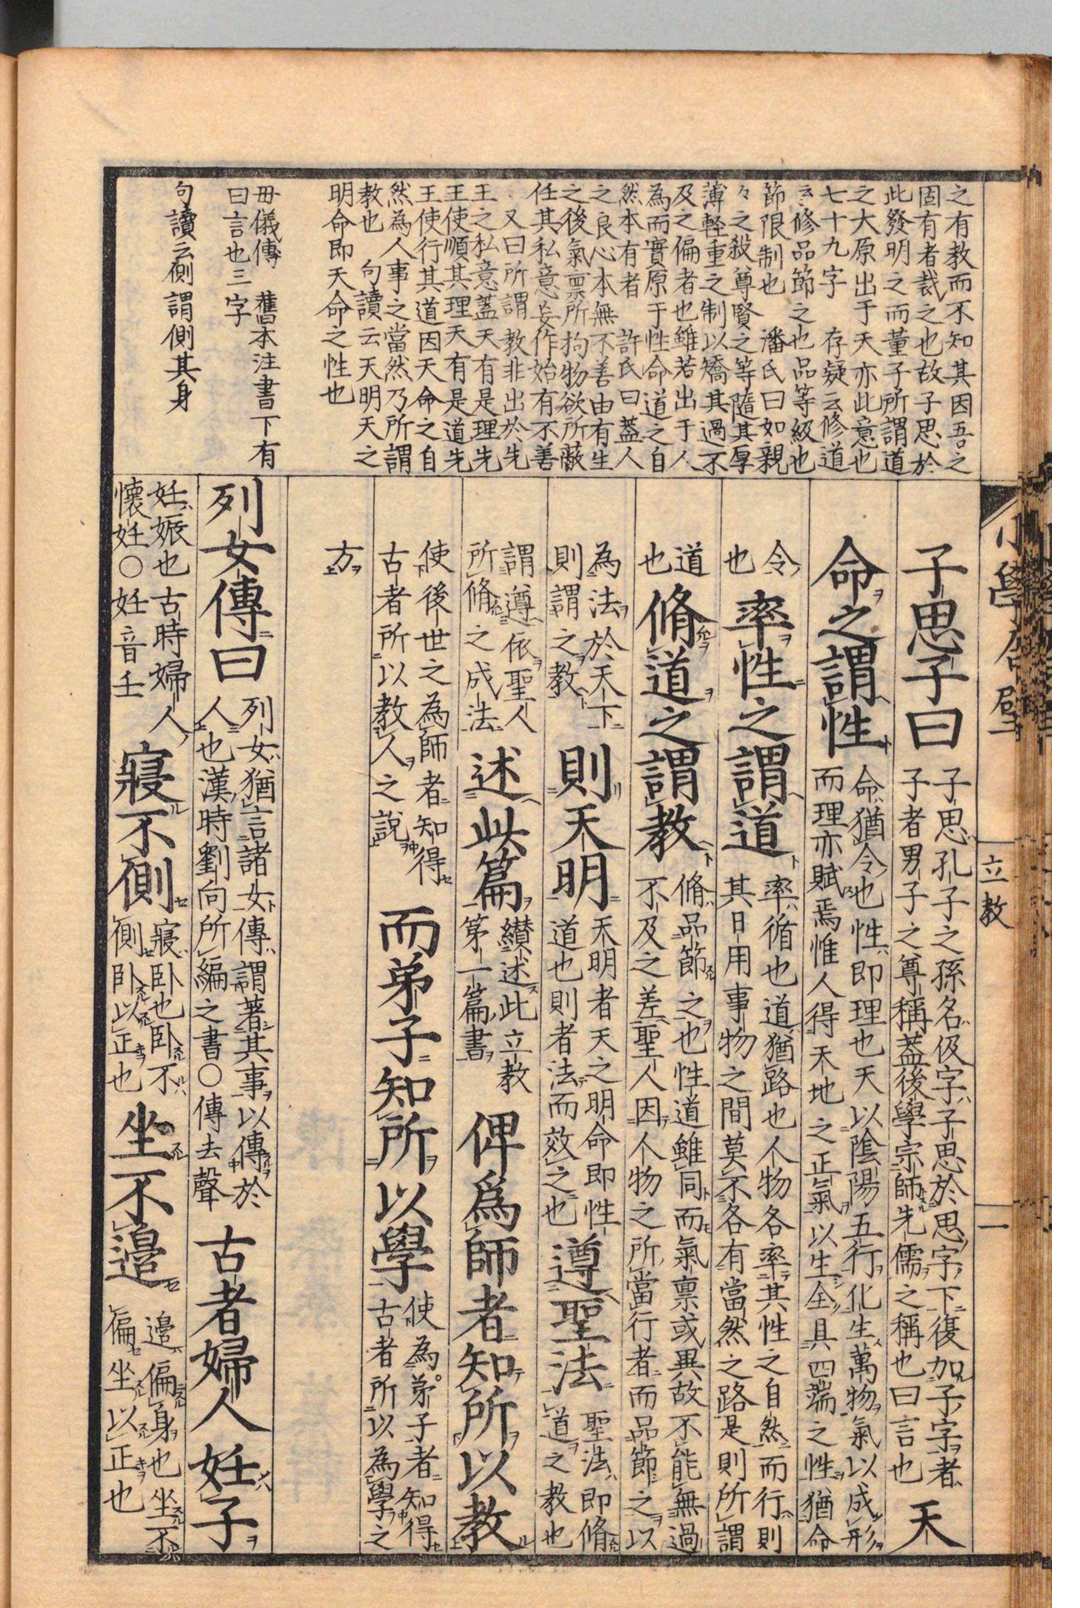 之有教而不知其因吾之
固有者裁之也故子思於
此發明之而董子所謂道
之大原出于天亦此意也
七十九字　存疑云修道
修品節之也品等級也
節限制也　潘氏曰如親
々之殺尊賢之等隨其厚
薄輕重之制以矯其過不
及之偏者也雖若出于人
為而實原于性命道之自
然本有者　許氏曰蓋人
之良心本無不善由有生
之後氣稟所拘物欲所蔽
任其私意妄作始有不善
又曰所謂教非出於先
王之私意蓋天有是理先
王使順其理天有是道先
王使行其道因天命之自
然為人事之當然乃所謂
教也　句讀云天明天之
明命即天命之性也
毋儀傳　舊本注書下有
曰言也三字
句讀云側謂側其身
立教
一
子思子曰
子思孔子之孫名伋字子思於思字下復加子字者
子者男子之尊稱蓋後學宗師先儒之稱也曰言也
天
命之謂性
命猶令也性即理也天以陰陽五行化生萬物氣以成形
而理亦賦焉惟人得天地之正氣以生全具四端之性猶命
令
也
率性之謂道
率循也道猶路也人物各率其性之自然而行則
其日用事物之間莫不各有當然之路是則所謂
道
也
脩道之謂教
脩品節之也性道雖同而氣稟或異故不能無過
不及之差聖人因人物之所當行者而品節之以
為法於天下
則謂之教
則天明
天明者天之明命即性
道也則者法而效之也
遵聖法
聖法即脩
道之教也
謂遵依聖人
所脩之成法
述此篇
纉述此立教
第一篇書
俾爲師者知所以教
使後世之為師者知得
古者所以教人之說
而弟子知所以學
使為弟子者知得
古者所以為學之
方
列女傳曰
列女猶言諸女傳謂著其事以傳於
人也漢時劉向所編之書○傳去聲
古者婦人妊子
妊娠也古時婦人
懷妊○妊音壬
寢不側
寢臥也臥不
側臥以正也
坐不邉
邉偏身也坐不
偏坐以正也